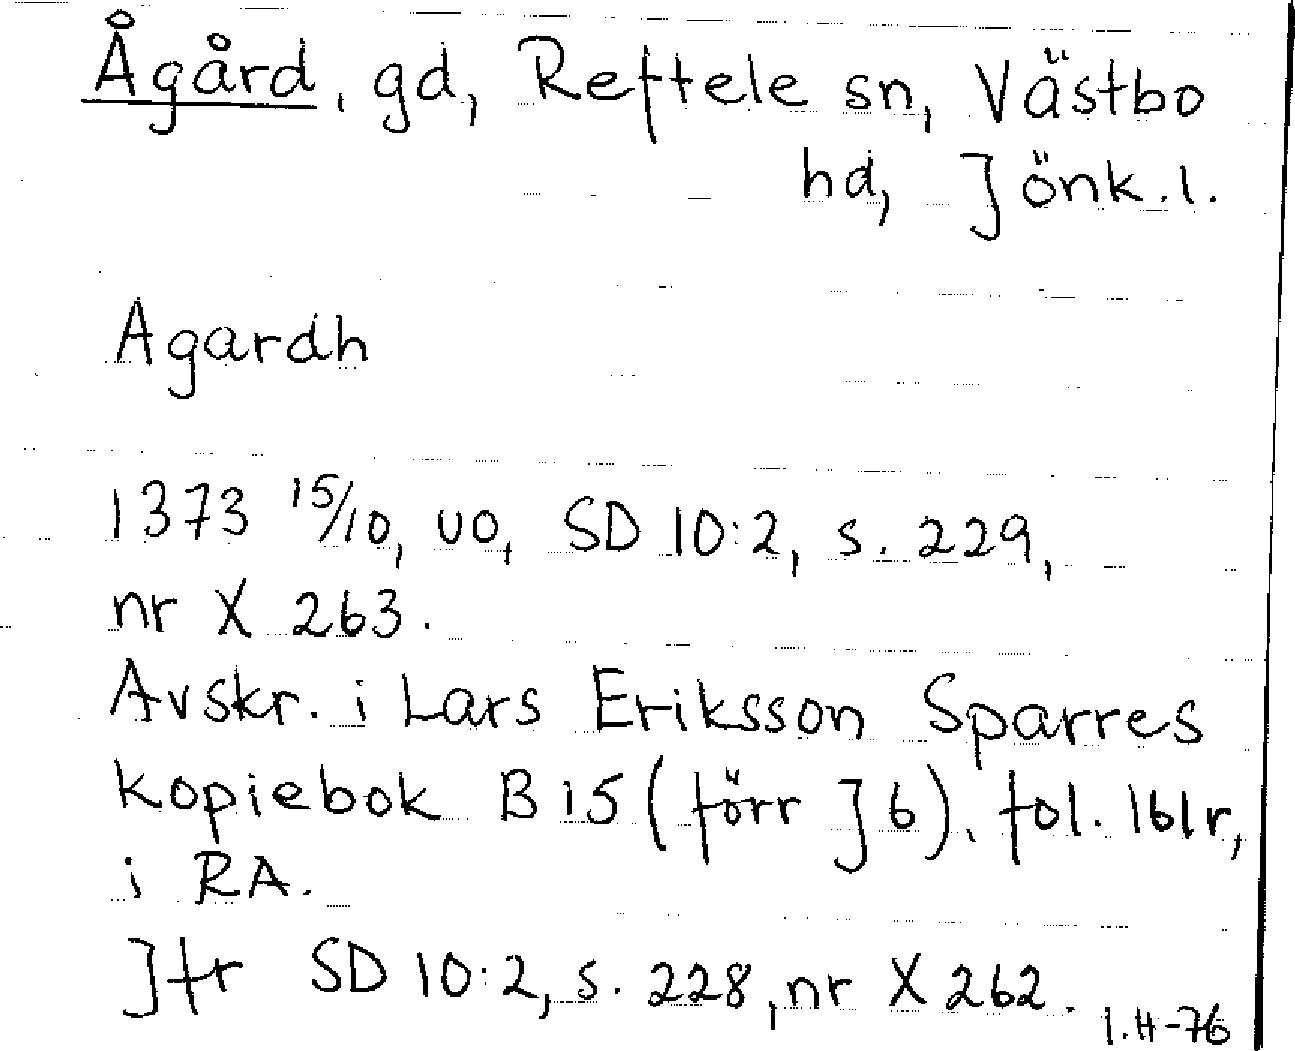 Ågård, gd, Reftele sn, Västbo
hd, Jönk.l.
Agardh
1373 15/10, uo, SD 10:2, s. 229,
nr X 263.
Avskr. i Lars Eriksson Sparres
kopiebok B 15 (förr J 6), fol. 161r,
i RA.
Jfr SD 10:2, s. 228, nr X 262.
I.H-76